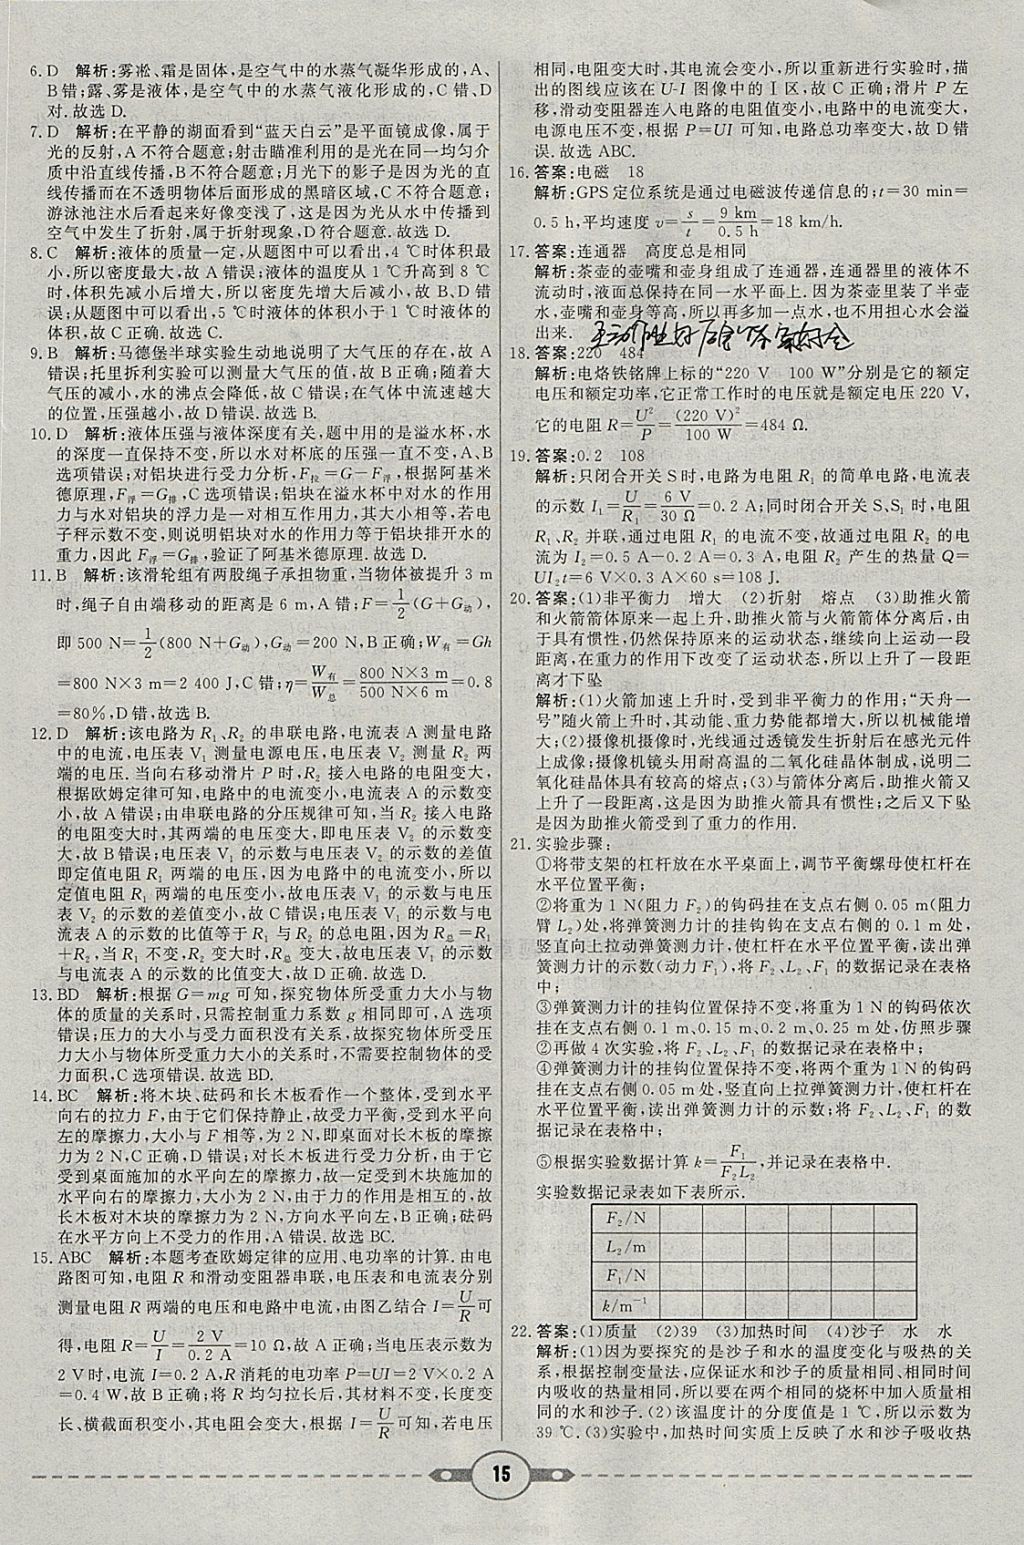 6. D　解析:雾凇、霜是固体,是空气中的水蒸气凝华形成的,A、
B错;露、雾是液体,是空气中的水蒸气液化形成的,C错、D
对.故选D.
7. D　解析:在平静的湖面看到“蓝天白云”是平面镜成像,属于
光的反射,A不符合题意;射击瞄准利用的是光在同一均匀介
质中沿直线传播,B不符合题意;月光下的影子是因为光的直
线传播而在不透明物体后面形成的黑暗区域,C不符合题意;
游泳池注水后看起来好像变浅了,这是因为光从水中传播到
空气中发生了折射,属于折射现象,D符合题意.故选D.
8. C　解析:液体的质量一定,从题图中可以看出,4 ℃时体积最
小,所以密度最大,故A错误;液体的温度从1 ℃升高到8 ℃
时,体积先减小后增大,所以密度先增大后减小,故B错误;D
错误;从题图中可以看出,5 ℃时液体的体积小于1 ℃时液体的
体积,故C正确.故选C.
9. B　解析:马德堡半球实验生动地说明了大气压的存在,故A
错误;托里拆利实验可以测量大气压的值,故B正确;随着大
气压的减小,水的沸点会降低,故C错误;在气体中流速越大
的位置,压强越小,故D错误.故选B.
10. D　解析:液体压强与液体深度有关,题中用的是溢水杯,水
的深度一直保持不变,所以水对杯底的压强一直不变,A、B
选项错误;对铝块进行受力分析,F拉=G−F浮,根据阿基米
德原理,F浮=G排,C选项错误;铝块在溢水杯中对水的作用
力与水对铝块的浮力是一对相互作用力,其大小相等,若电
子秤示数不变,则说明铝块对水的作用力等于铝块排开水的
重力,因此F浮=G排,验证了阿基米德原理.故选D.
11. B　解析:该滑轮组有两股绳子承担物重,当物体被提升3 m
时,绳子自由端移动的距离是6 m,A错;F=1/2(G+G动),
即500 N=1/2(800 N+G动),G动=200 N,B正确;W有=Gh
=800 N×3 m=2 400 J,C错;η=W有/W总=800 N×3 m/500 N×6 m=0.8
=80%,D错,故选B.
12. D　解析:该电路为R₁、R₂的串联电路,电流表A测量电路
中的电流,电压表V₁测量电源电压,电压表V₂测量R₂两
端的电压.当向右移动滑片P时,R₂接入电路的电阻变大,
根据欧姆定律可知,电路中的电流变小,电流表A的示数变
小,故A错误;由串联电路的分压规律可知,当R₂接入电路
的电阻变大时,其两端的电压变大,即电压表V₂的示数变
大,故B错误;电压表V₁的示数与电压表V₂的示数的差值
即定值电阻R₁两端的电压,因为电路中的电流变小,所以
定值电阻R₁两端的电压变小,故电压表V₁的示数与电压
表V₂的示数的差值变小,故C错误;电压表V₁的示数与电
流表A的示数的比值等于R₁与R₂的总电阻,因为R总=R₁
+R₂,当R₁不变,R₂变大时,R总变大,故电压表V₁的示数
与电流表A的示数的比值变大,故D正确.故选D.
13. BD　解析:根据G=mg可知,探究物体所受重力大小与物
体的质量的关系时,只需控制重力系数g相同即可,A选项
错误;压力的大小与受力面积没有关系,故探究物体所受压
力大小与物体所受重力大小的关系时,不需要控制物体的受
力面积,C选项错误.故选BD.
14. BC　解析:将木块、砝码和长木板看作一个整体,受到水平
向右的拉力F,由于它们保持静止,故受力平衡,受到水平
向左的摩擦力,大小与F相等,为2 N,即桌面对长木板的摩擦
力为2 N,C正确,D错误;对长木板进行受力分析,由于它
受到桌面施加的水平向左的摩擦力,故一定受到木块施加的
水平向右的摩擦力,大小为2 N,由于力的作用是相互的,故
长木板对木块的摩擦力为2 N,方向水平向左,B正确;砝码
在水平方向上不受力的作用,A错误.故选BC.
15. ABC　解析:本题考查欧姆定律的应用、电功率的计算.由电
路图可知,电阻R和滑动变阻器串联,电压表和电流表分别
测量电阻R两端的电压和电路中电流,由图乙结合I=U/R可
得,电阻R=U/I=2 V/0.2 A=10 Ω,故A正确;当电压表示数为
2 V时,电流I=0.2 A,R消耗的电功率P=UI=2 V×0.2 A
=0.4 W,故B正确;将R均匀拉长后,其材料不变,长度变
长、横截面积变小,其电阻会变大,根据I=U/R可知,若电压
相同,电阻变大时,其电流会变小,所以重新进行实验时,描出
的图线应该在U-I图像中的Ⅰ区,故C正确;滑片P左
移,滑动变阻器连入电路的电阻值变小,电路中的电流变大,
电源电压不变,根据P=UI可知,电路总功率变大,故D错
误.故选ABC.
16. 答案:电磁　18
解析:GPS定位系统是通过电磁波传递信息的;t=30 min=
0.5 h,平均速度v=s/t=9 km/0.5 h=18 km/h.
17. 答案:连通器　高度总是相同
解析:茶壶的壶嘴和壶身组成了连通器,连通器里的液体不
流动时,液面总保持在同一水平面上.因为茶壶里装了半壶
水,壶嘴和壶身等高,所以再多加一点水,也不用担心水会溢
出来.
18. 答案:220　484
解析:电烙铁铭牌上标的“220 V　100 W”分别是它的额定
电压和额定功率,它正常工作时的电压就是额定电压220 V,
它的电阻R=U²/P=(220 V)²/100 W=484 Ω.
19. 答案:0.2　108
解析:只闭合开关S时,电路为电阻R₁的简单电路,电流表
的示数I₁=U/R₁=6 V/30 Ω=0.2 A;同时闭合开关S、S₁时,电阻
R₁、R₂并联,通过电阻R₁的电流不变,故通过电阻R₂的电
流为I₂=0.5 A−0.2 A=0.3 A,电阻R₂产生的热量Q=
UI₂t=6 V×0.3 A×60 s=108 J.
20. 答案:(1)非平衡力　增大　(2)折射　熔点　(3)助推火箭
和火箭箭体原来一起上升,助推火箭与火箭箭体分离后,由
于具有惯性,仍然保持原来的运动状态,继续向上运动一段
距离,在重力的作用下改变了运动状态,所以上升了一段距
离才下坠
解析:(1)火箭加速上升时,受到非平衡力的作用;“天舟一
号”随火箭上升时,其动能、重力势能都增大,所以机械能增
大;(2)摄像机摄像时,光线通过透镜发生折射后在感光元件
上成像;摄像机镜头用耐高温的二氧化硅晶体制成,说明二
氧化硅晶体具有较高的熔点;(3)与箭体分离后,助推火箭又
上升了一段时间,是因为助推火箭具有惯性;之后又下坠,
是因为助推火箭受到了重力的作用.
21. 实验步骤:
①将带支架的杠杆放在水平桌面上,调节平衡螺母使杠杆在
水平位置平衡;
②将重为1 N(阻力F₂)的钩码挂在支点右侧0.05 m(阻力
臂L₂)处,将弹簧测力计的挂钩钩在支点右侧的0.1 m处,
竖直向上拉动弹簧测力计,使杠杆在水平位置平衡,读出弹
簧测力计的示数(动力F₁),将F₂、L₂、F₁的数据记录在表格
中;
③弹簧测力计的挂钩位置保持不变,将重为1 N的钩码依次
挂在支点右侧0.1 m、0.15 m、0.2 m、0.25 m处,仿照步骤
②再做4次实验,将F₂、L₂、F₁的数据记录在表格中;
④弹簧测力计的挂钩位置保持不变,将两个重为1 N的钩码
挂在支点右侧0.05 m处,竖直向上拉弹簧测力计,使杠杆在
水平位置平衡,读出弹簧测力计的示数;将F₂、L₂、F₁的数
据记录在表格中;
⑤根据实验数据计算k=F₁/F₂L₂,并记录在表格中.
实验数据记录表如下表所示.
F₂/N
L₂/m
F₁/N
k/m⁻¹
22. 答案:(1)质量　(2)39　(3)加热时间　(4)沙子　水　水
解析:(1)因为要探究的是沙子和水的温度变化与吸热的关
系,根据控制变量法,应保证水和沙子的质量相同、相同时间
内吸收的热量相同,所以要在两个相同的烧杯中加入质量相
同的水和沙子.(2)该温度计的分度值是1 ℃,所以示数为
39 ℃.(3)实验中,加热时间实质上反映了水和沙子吸收热
15